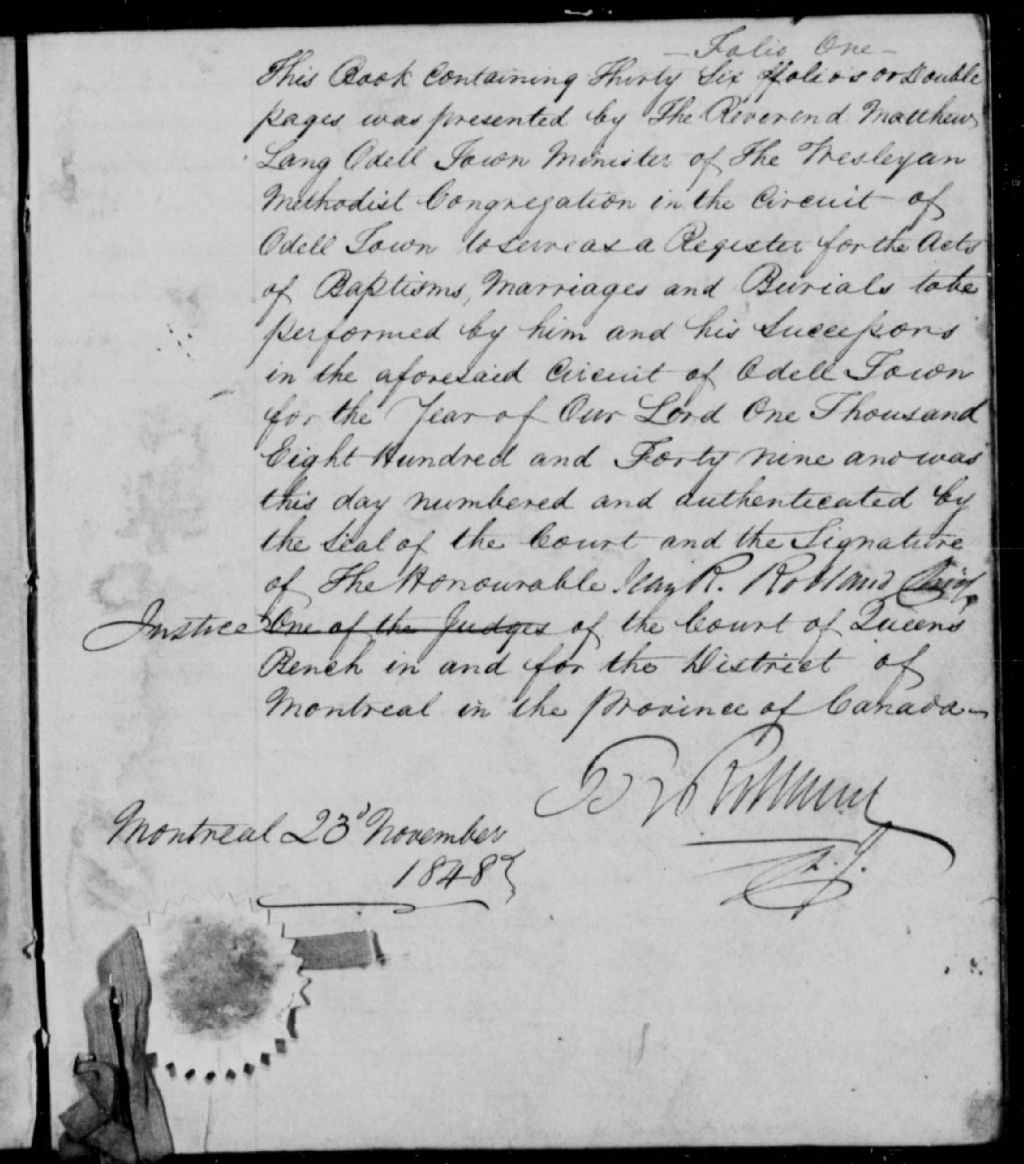 — Folio One —
This Book Containing Thirty Six ffolios or Double
pages was presented by The Reverend Matthew
Lang Odell Town Minister of The Wesleyan
Methodist Congregation in the Circuit of
Odell Town to serve as a Register for the Acts
of Baptisms, Marriages and Burials to be
performed by him and his Successors
in the aforesaid Circuit of Odell Town
for the Year of Our Lord One Thousand
Eight Hundred and Forty nine and was
this day numbered and authenticated by
the Seal of the Court and the Signature
of The Honourable Jean R. Rolland Chief
Justice One of the Judges of the Court of Queens
Bench in and for the District of
Montreal in the Province of Canada —
Rolland
C.J.
Montreal 23d November
1848